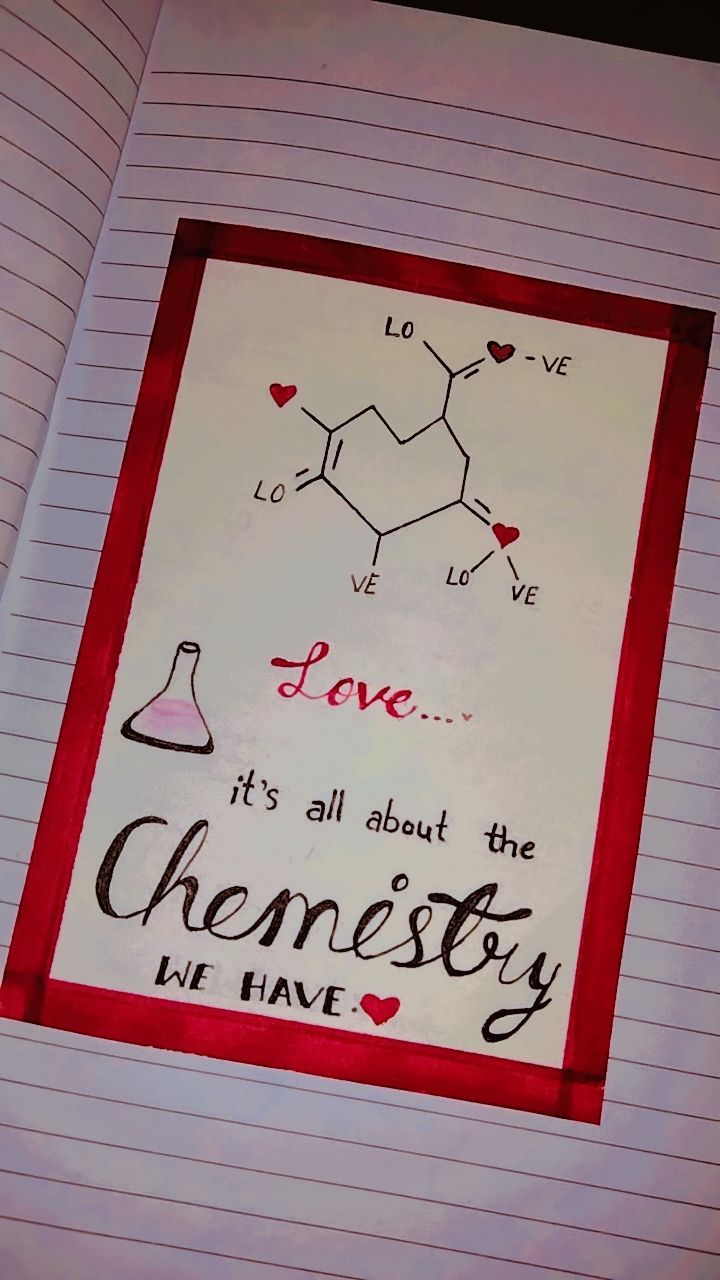 LO
-VE
LO
VE
LO
VE
Love...
it's all about the
Chemistry
WE HAVE.